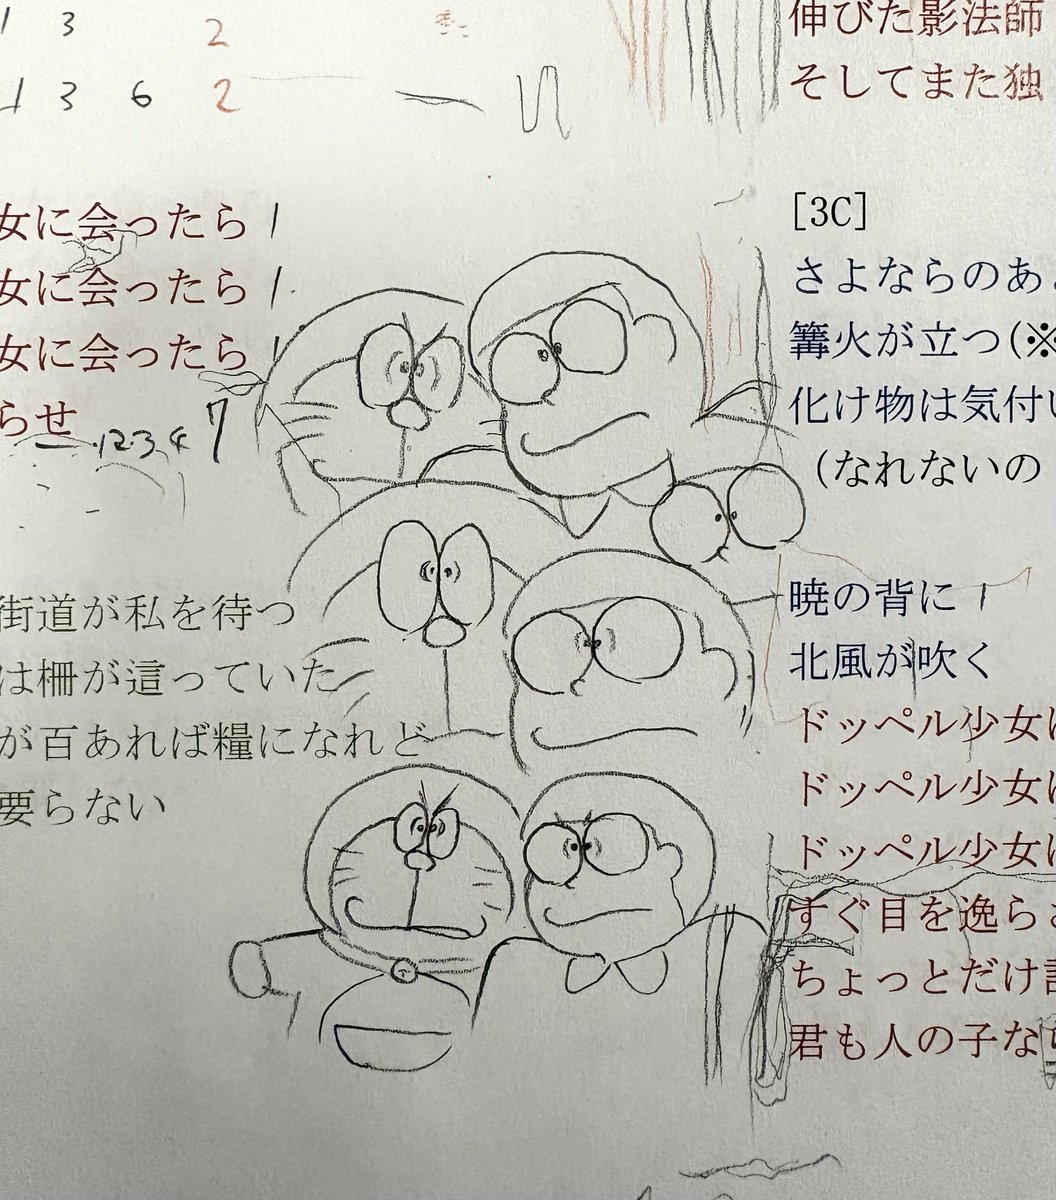 1 3 2
1 3 6 2
女に会ったら 1
女に会ったら 1
女に会ったら 1
らせ
123 4 7
街道が私を待つ
は柵が這っていた
が百あれば糧になれど
要らない
伸びた影法師
そしてまた独
[3C]
さよならのあ
篝火が立つ(※
化け物は気付い
(なれないの
暁の背に 1
北風が吹く
ドッペル少女に
ドッペル少女に
ドッペル少女に
すぐ目を逸らさ
ちょっとだけ
君も人の子なら